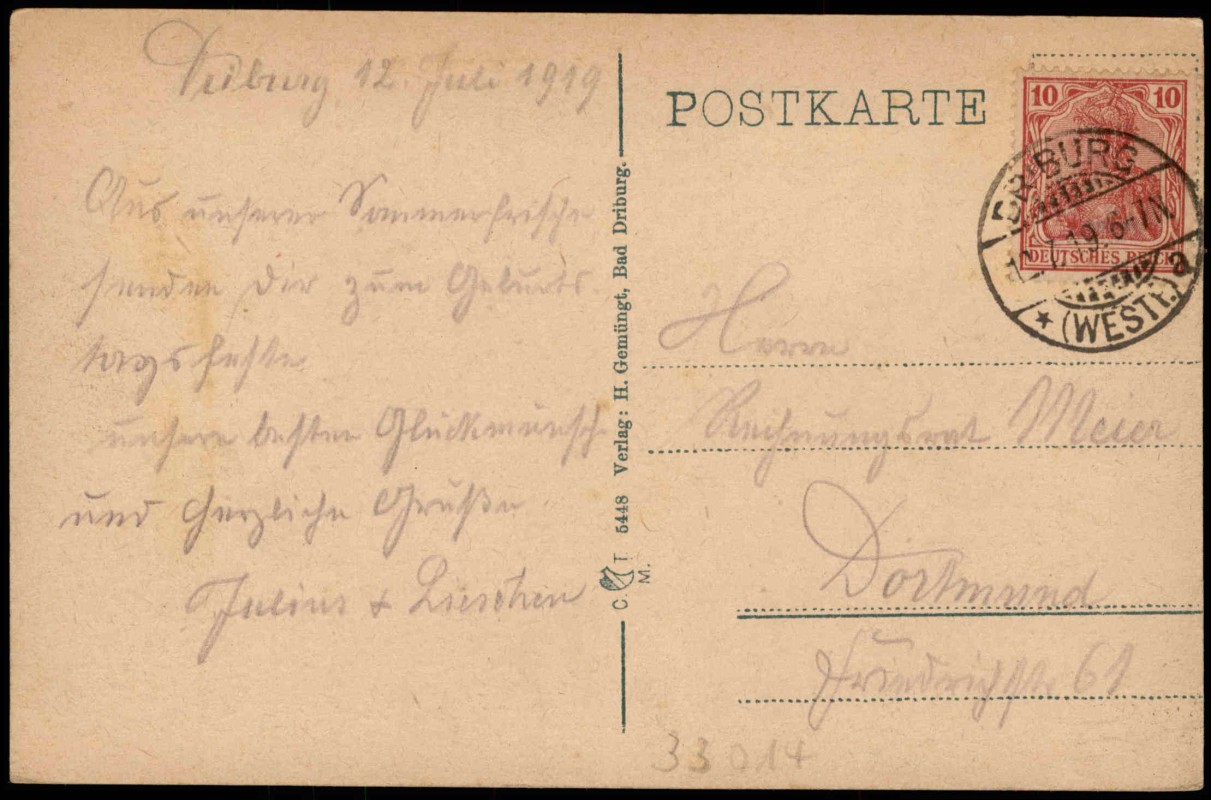 Driburg 12. Juli 1919
Aus unserer Sommerfrische
senden Dir zum Geburts-
tagsfeste
unsere besten Glückwünsche
und herzliche Grüße
Julius & Lieschen
5448 Verlag: H. Gemüngt, Bad Driburg.
C. T.
M.
POSTKARTE
10 10
DEUTSCHES REICH
DRIBURG
12.7.19.6-7N
* (WESTF.) a
Herrn
Rechnungsrat Meier
Dortmund
Friedrichstr. 61
33 014